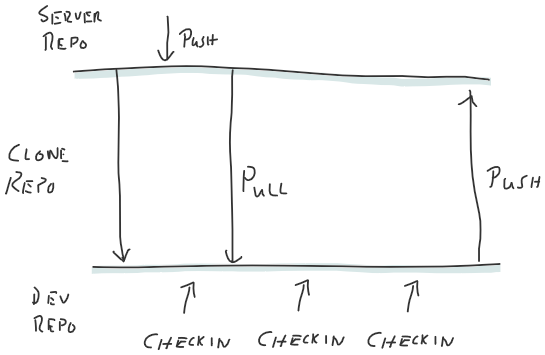 SERVER
REPO
PUSH
CLONE
REPO
PULL
PUSH
DEV
REPO
CHECKIN CHECKIN CHECKIN